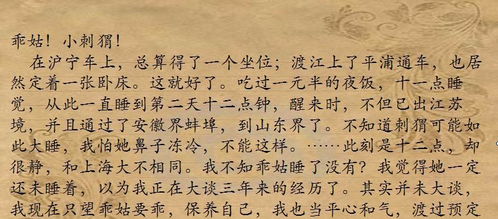 乖姑！小刺猬！
在沪宁车上，总算得了一个坐位；渡江上了平浦通车，也居
然定着一张卧床。这就好了。吃过一元半的夜饭，十一点睡
觉，从此一直睡到第二天十二点钟，醒来时，不但已出江苏
境，并且通过了安徽界蚌埠，到山东界了。不知道刺猬可能如
此大睡，我怕她鼻子冻冷，不能这样。……此刻是十二点，却
很静，和上海大不相同。我不知乖姑睡了没有？我觉得她一定
还未睡着，以为我正在大谈三年来的经历了。其实并未大谈，
我现在只望乖姑要乖，保养自己，我也当平心和气，渡过预定